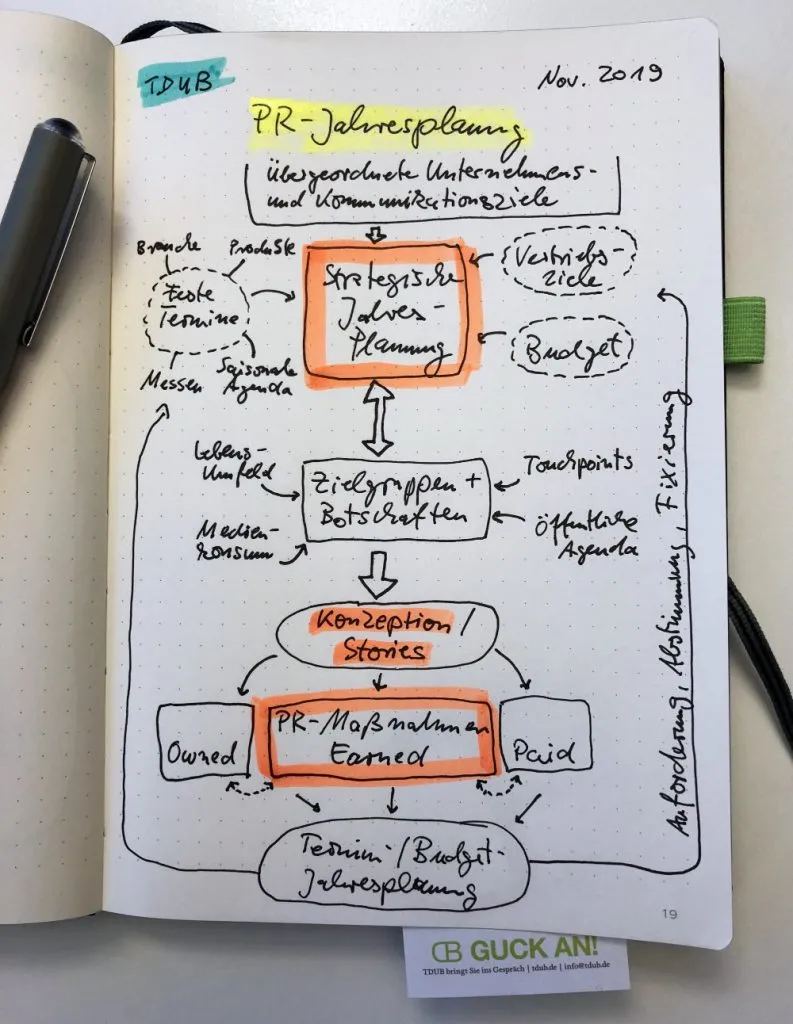 TDUB
Nov. 2019
PR-Jahresplanung
Übergeordnete Unternehmens-
und Kommunikationsziele
Branche
Produkte
Feste
Termine
Messen
Saisonale
Agenda
Strategische
Jahres-
Planung
Vertriebs-
ziele
Budget
Lebens-
Umfeld
Medien-
konsum
Zielgruppen +
Botschaften
Touchpoints
Öffentliche
Agenda
Konzeption /
Stories
Owned
PR-Maßnahmen
Earned
Paid
Termin-/Budget-
Jahresplanung
Anforderung, Abstimmung, Fixierung
19
DB GUCK AN!
TDUB brings Sie ins Gespräch | tdub.de | info@tdub.de